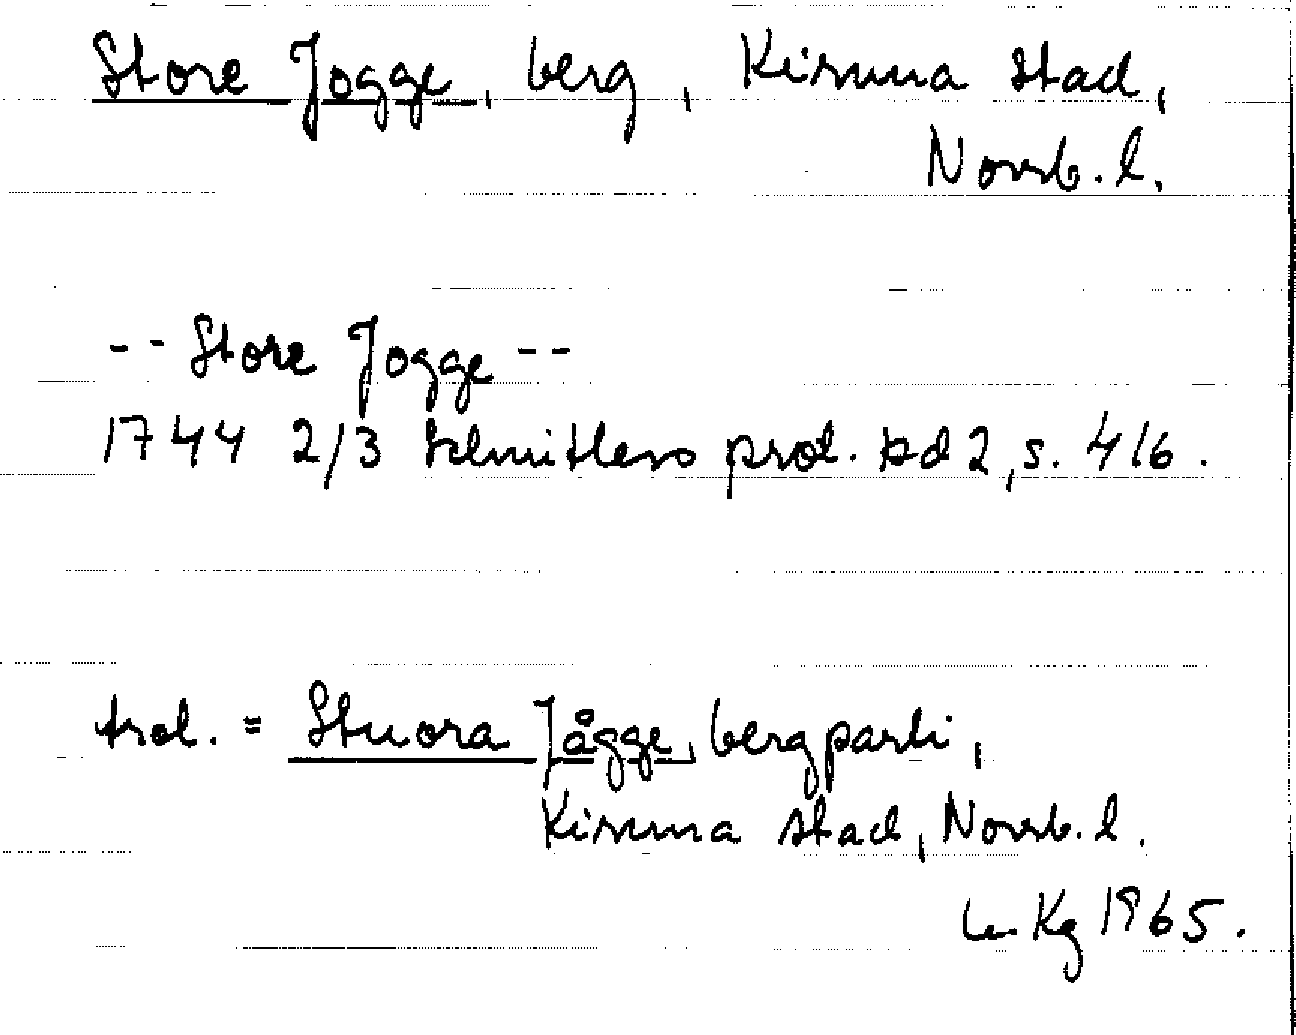 Store Jogge, berg, Kiruna stad,
Norrb. l.
-- Store Jogge --
1744 2/3 Schnitlers prot. bd 2, s. 416.
trol. = Stuora Jågge, bergparti,
Kiruna stad, Norrb. l.
Kg 1965.